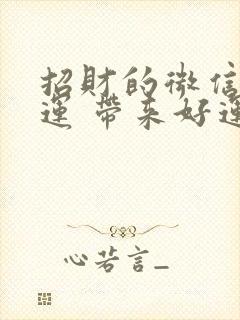 招財的微信
運 帶来好運
心若言_